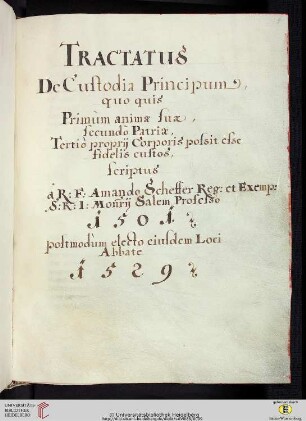 TRACTATUS
De Custodia Principum,
quo quis
Primùm animæ suæ,
secundò Patriæ,
Tertiò proprij Corporis possit esse
fidelis custos,
scriptus
à R: F: Amando Scheffer Reg: et Exemp:
S: R: I: Mon'rij Salem Professo
1501
postmodum electo eiusdem Loci
Abbate
1529
UNIVERSITÄTS-
BIBLIOTHEK
HEIDELBERG
© Universitätsbibliothek Heidelberg
gefördert durch
Baden-Württemberg